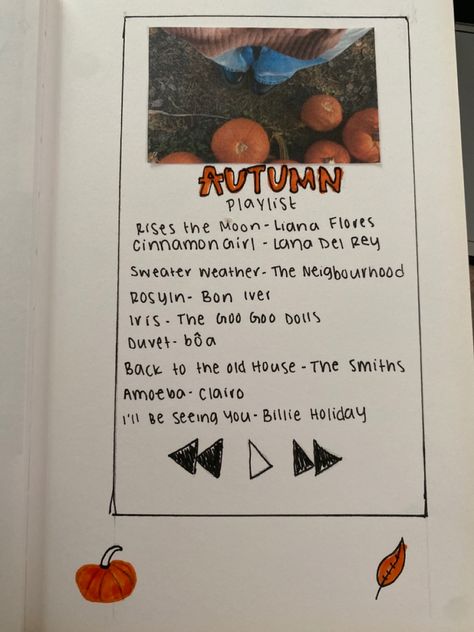 AUTUMN
Playlist
Rises the Moon - Liana Flores
Cinnamon Girl - Lana Del Rey
Sweater Weather - The Neigbourhood
Rosyln - Bon Iver
Iris - The Goo Goo Dolls
Duvet - bôa
Back to the old House - The Smiths
Amoeba - Clairo
I'll Be Seeing You - Billie Holiday